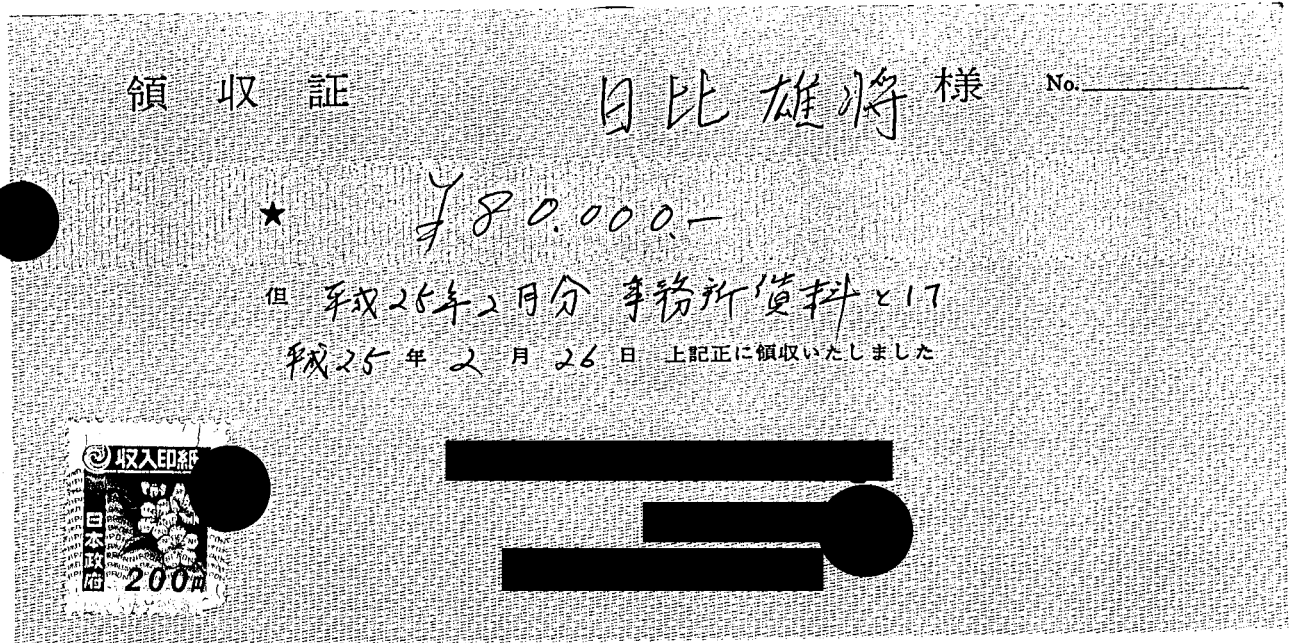 領収証 日比雄将 様 No.
★ ¥80.000.-
但 平成25年2月分 事務所賃料として
平成25年2月26日 上記正に領収いたしました
収入印紙
日本政府
200円